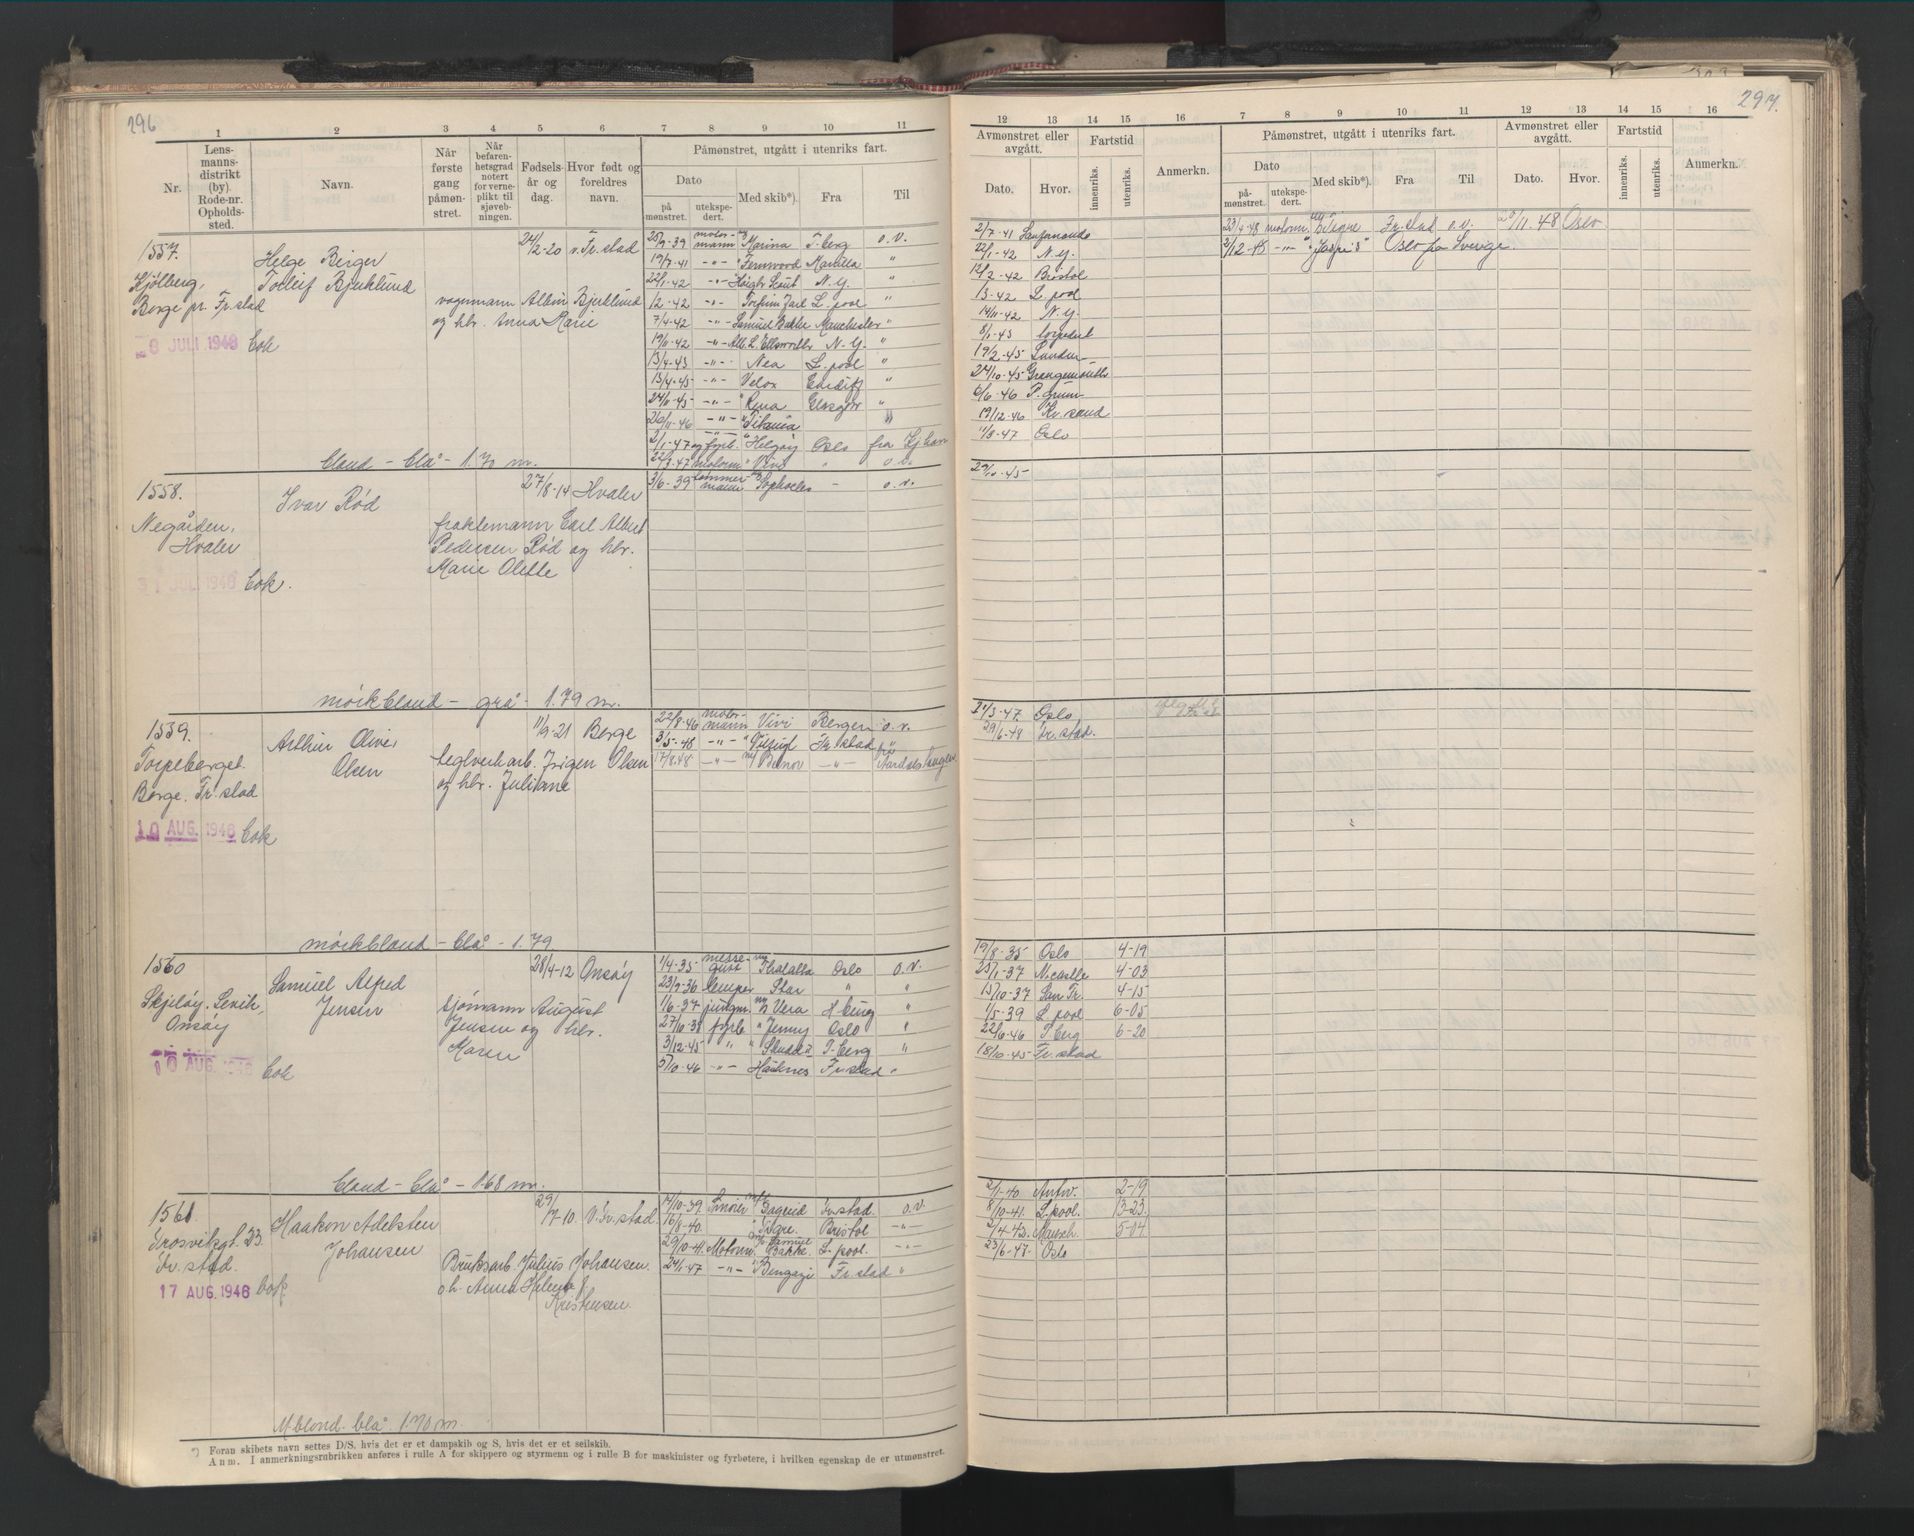 296
1
2
3
4
5
6
7
8
9
10
11
Nr.
Lens-
manns-
distrikt
(by).
Rode-nr.
Opholds-
sted.
Navn.
Når
første
gang
påmøn-
stret.
Når
befaren-
hetsgrad
notert
for verne-
plikt til
sjøveb-
ningen.
Fødsels-
år og
dag.
Hvor født og
foreldres
navn.
Påmønstret, utgått i utenriks fart.
Dato
på
mønstret.
utekspe-
dert.
Med skib*).
Fra
Til
1557.
Kjølberg,
Borge pr. Fr.stad
8 JULI 1946 Bok
Helge Birger
Torleif Bjuklund
24/2-20 v. Fr.stad
vognmann Albin Bjuklund
og hbr. Anna Marie
blond - blå - 1.70 m.
25/9-39 motor-mann Marina T.berg o.v.
19/7-41 -"- Fernwood Manilla "
22/1-42 -"- N.Y. "
12/2-42 -"- Torfinn Jarl L.pool "
7/4-42 -"- Samuel Bakke Manchester "
19/11-42 -"- N.Y. "
13/4-43 -"- Nea L.pool "
13/4-45 -"- Velox Cardiff "
24/11-45 -"- Rena Glasgow "
26/11-46 -"- Titania "
2/1-47 og fyrb. Helgøy Oslo fra Kjhavn
22/3-47 motorm. Vivi " o.v.
1558.
Negården,
Hvaler
31 JULI 1946 Bok.
Ivar Rød
27/8-14 Hvaler
fraktemann Carl Albert
Pedersen Rød og hbr.
Marie Olette
mørkblond - grå - 1.79 m.
3/6-39 tømmer-mann Sophocles - o.v.
1559.
Torpeberget
Borge. Fr.stad
10 AUG. 1946 Bok
Arthur Oliver
Olsen
11/9-21 Borge
teglverkarb. Jørgen Olsen
og hbr. Juliane
mørkblond - blå - 1.79
22/8-46 motor-mann Vivi Bergen o.v.
3/5-48 -"- Fr.stad
17/8-48 -"- -"- Aardalstangen
1560
Skjeløy. Levik,
Onsøy
10 AUG. 1946 Bok
Samuel Alfred
Jensen
28/4-12 Onsøy
sjømann August
Jensen og hbr.
Maren
blond - blå - 1.68 m.
1/4-35 messe-gutt Thalatta Oslo o.v.
23/9-36 lemper Star " "
1/6-37 jungm. Vera H.burg "
27/10-38 fyrb. " Jenny Oslo "
3/12-45 " " T.berg "
5/10-46 -"- Fr.stad "
1561
Trosvikgt. 23
Fr.stad.
17 AUG. 1946 bok.
Haakon Adelsten
Johansen
29/7-10. V. Fr.stad.
Bruksarb. Julius Johansen.
o.h. Anna Helene f.
Kristensen.
M.blond. blå. 1.70 m.
14/10-39. Smører Fr.stad. o.v.
16/8-40. " Tigre. Bristol -"-
29/10-41. Motorm. Samuel Bakke L.pool. -"-
24/1-47 -"- Bengazi Fr.stad "
*) Foran skibets navn settes D/S, hvis det er et dampskib og S, hvis det er et seilskib.
Anm. I anmerkningsrubrikken anføres i rulle A for skippere og styrmenn og i rulle B for maskinister og fyrbøtere, i hvilken egenskap de er utmønstret.
303
297.
12
13
14
15
16
7
8
9
10
11
12
13
14
15
16
Avmønstret eller
avgått.
Fartstid
Påmønstret, utgått i utenriks fart.
Avmønstret eller
avgått.
Fartstid
Dato.
Hvor.
innenriks.
utenriks.
Anmerkn.
Dato
på-
mønstret.
utekspe-
dert.
Med skib*).
Fra
Til
Dato.
Hvor.
innenriks.
utenriks.
Anmerkn.
2/7-41 23/4-48 motorm. B. Tigre Fr.stad o.v. 20/11-48 Oslo
22/1-42 N.Y. 2/12-48 -"- "Jaspis" Oslo fra Sverige.
12/2-42 Bristol
13-42 L.pool
14/11-42 N.Y.
8/1-43 torpedert
19/2-45 London
24/10-45 Grangemouth
6/6-46 P.grunn
19/12-46 Kr.sand
11/3-47 Oslo
29/10-45
24/3-47. Oslo
29/6-48 Fr.stad.
19/8-35 Oslo 4-19
25/1-37 N.castle 4-03
15/10-37 San Fr. 4-15
1/5-39 L.pool 6-05
22/6-46 T.berg 6-20
18/10-45 Fr.stad
2/1-40. Antw. 2-19
8/10-41. L.pool. 13-23.
2/4-43. Mansch. 5-04.
23/6-47. Oslo